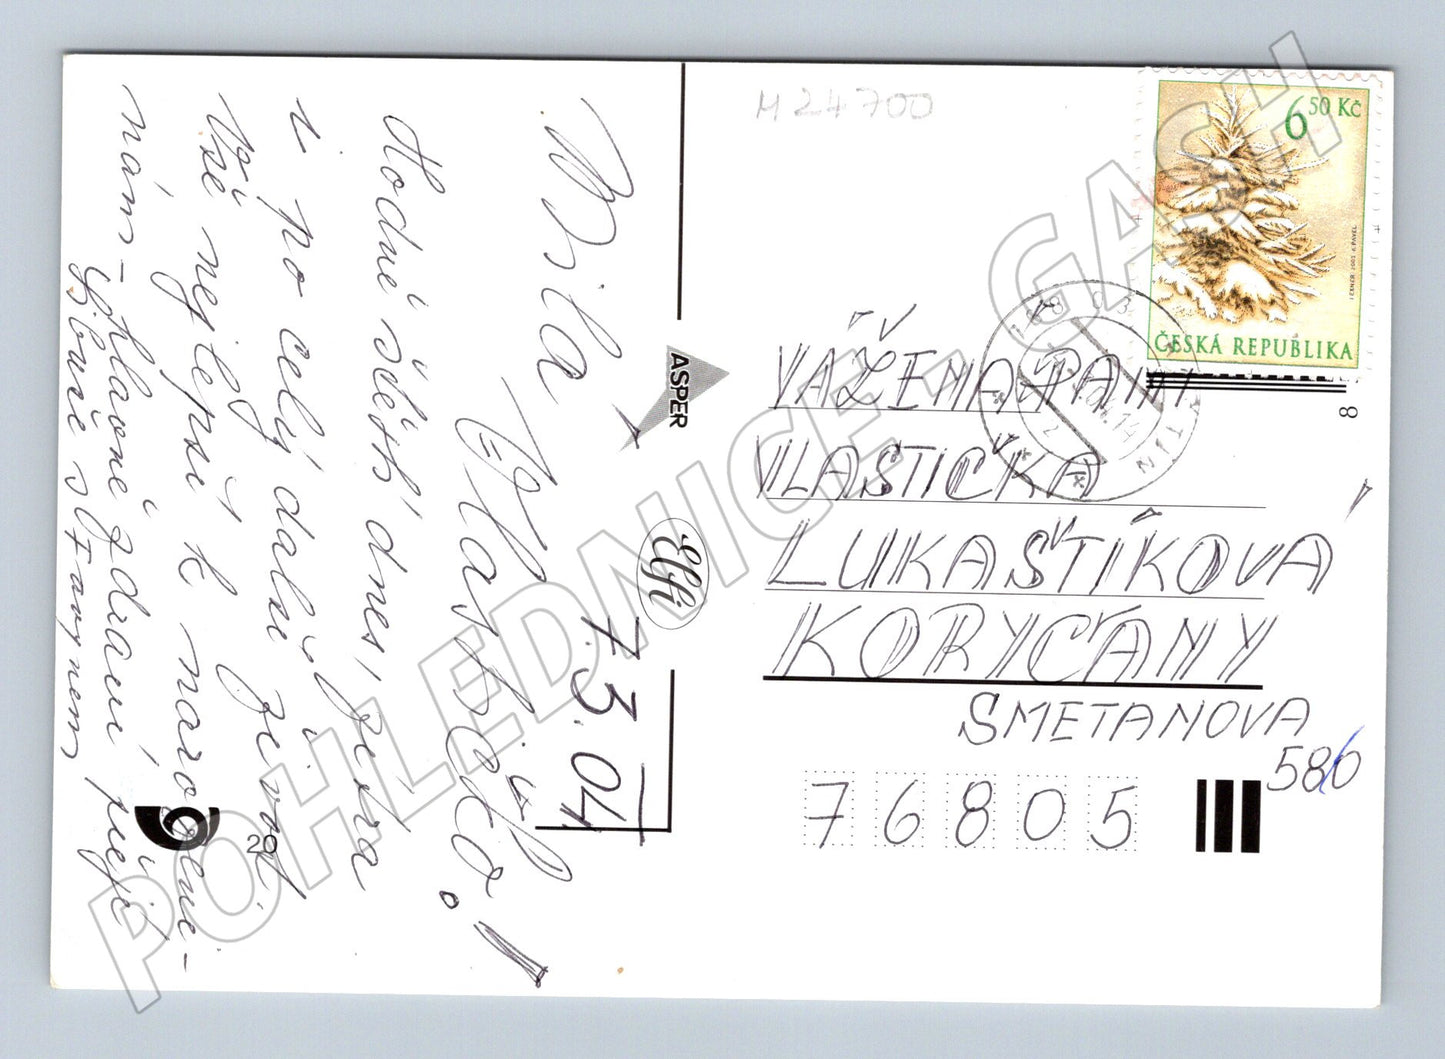 M 24700
6 50 Kč
ČESKÁ REPUBLIKA
8
VÁŽENÁ PANÍ
VLASTIČKA
LUKAŠTÍKOVÁ
KORYČANY
SMETANOVA
586
76805
ASPER
Effi
7.3.04
Milá
Vlastičko!
Hodně štěstí dnes, zítra
i po celý další život.
Vše nejlepší k naroze-
nám - hlavně zdraví přeje
Libuše s
20
POHLEDNICE - GASH